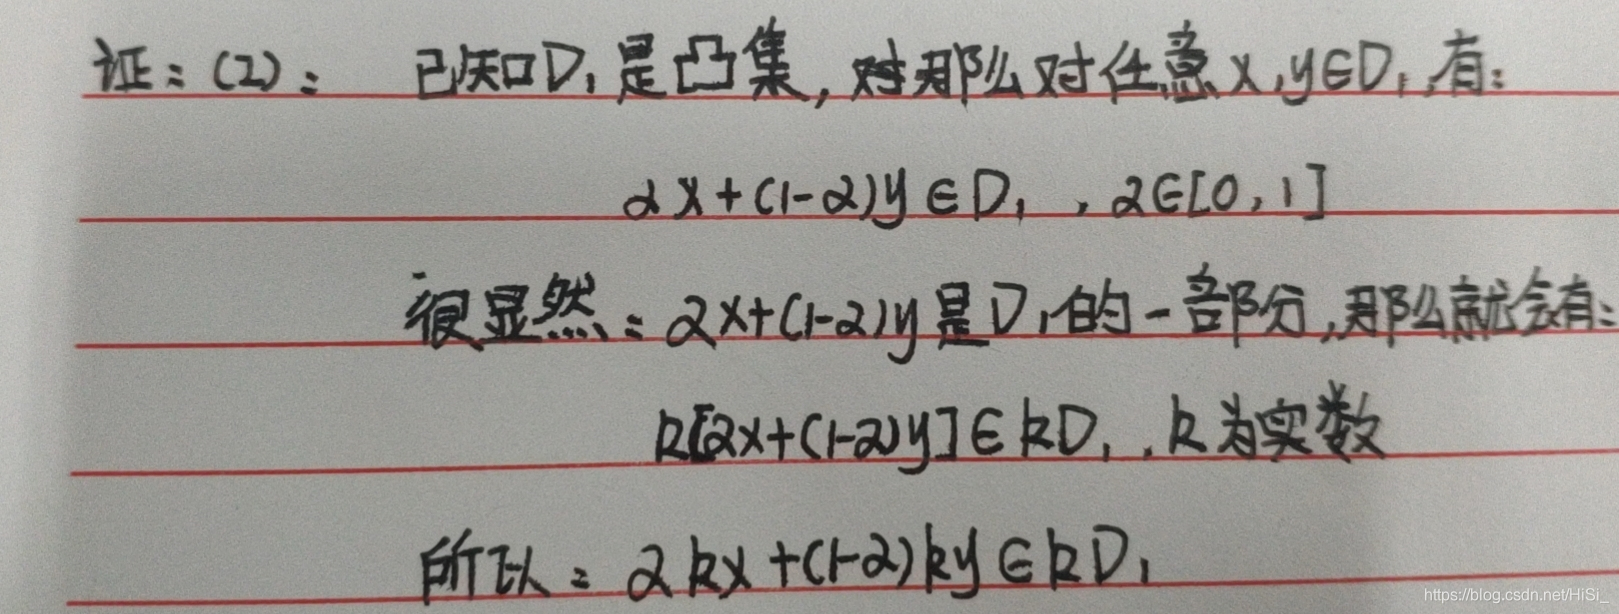 证：(2)： 已知D₁是凸集，对那么对任意x,y∈D₁,有：
αx+(1-α)y∈D₁，α∈[0,1]
很显然：αx+(1-α)y是D₁的一部分,那么就会有：
k[αx+(1-α)y]∈kD₁，k为实数
所以：αkx+(1-α)ky∈kD₁
https://blog.csdn.net/HiSi_